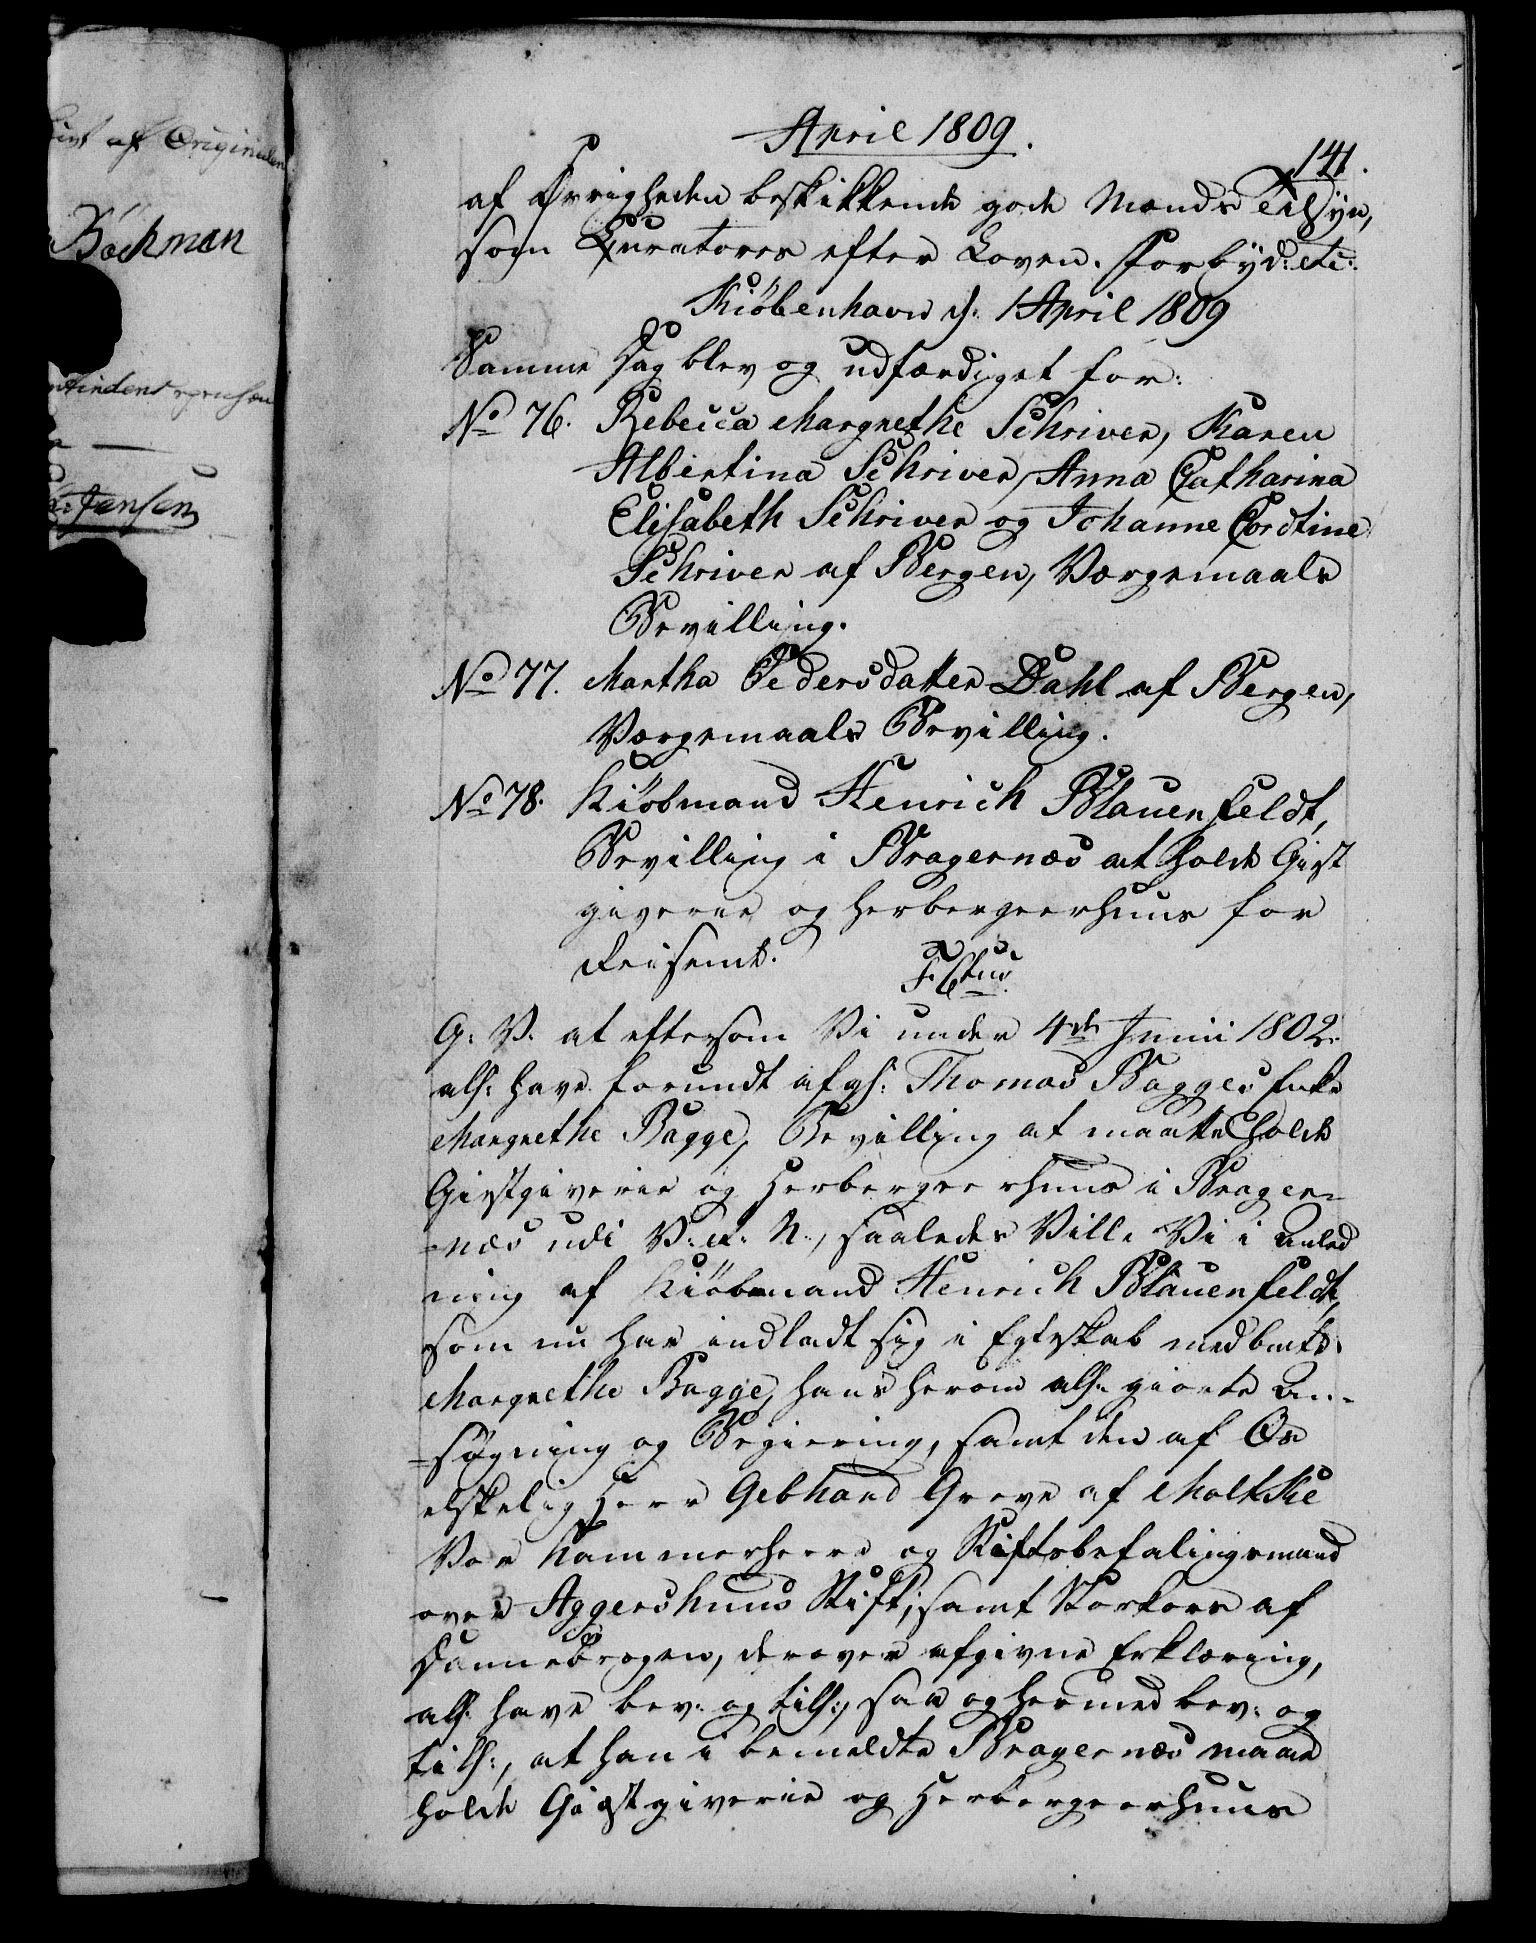 April 1809.
141.
af Øvrigheden beskikkende gode Mænds Tilsyn,
som Curatores efter Loven. Forbyd: etc:
Kiöbenhavn d: 1 April 1809
Samme Dag blev og udfærdiget for:
No 76. Rebecca Margrethe Schriver, Karen
Albertina Schriver, Anna Catharina
Elisabeth Schriver og Johanne Cordtine
Schriver af Bergen, Værgemaals
Bevilling.
No 77. Martha Pedersdatter Dahl af Bergen,
Værgemaals Bevilling.
No 78. Kiöbmand Henrich Blauenfeldt,
Bevilling i Bragernæs at holde Giest
giverie og Herbergeerhuus for
Reisende.
G: V: at eftersom Vi under 4de Junii 1802
alh: have forundt afg: Thomas Bagges Enke
Margrethe Bagge, Bevilling at maatte holde
Giestgiverie og Herbergeerhuus i Brager=
=næs udi V: et: N:, saaledes Ville Vi i Anled
ning af Kiöbmand Henrich Blauenfeldt,
som nu har indladt sig i Egteskab med bemte
Margrethe Bagge, hans herom alh: giorte An=
=søgning og Begiering, samt den af Os
elskelig Herr Gebhard Greve af Moltke
Vor Kammerherre og Stiftsbefalingsmand
over Aggershuus Stift, samt Storkors af
Dannebrogen, derover afgivne Erklæring,
alh: have bev: og tilh:, saa og hermed bev: og
tilh:, at han i bemeldte Bragernæs maae
holde Giæstgiverie og Herbergeerhuus
af Originalen
Böckman
Jensen